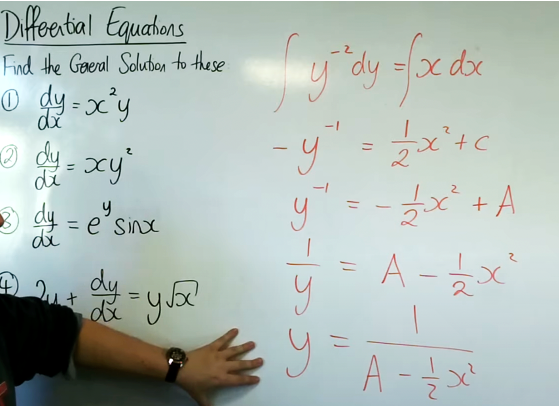 Differential Equations
Find the General Solution to these
① dy/dx = x²y
② dy/dx = xy²
③ dy/dx = e^y sinx
④ 2y + dy/dx = y√x
∫ y⁻² dy = ∫ x dx
- y⁻¹ = 1/2 x² + c
y⁻¹ = - 1/2 x² + A
1/y = A - 1/2 x²
y = 1/(A - 1/2 x²)